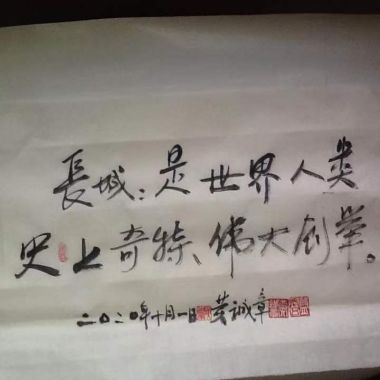 長城：是世界人类
史上奇特、伟大创举。
二〇二〇年十月一日黄诚章